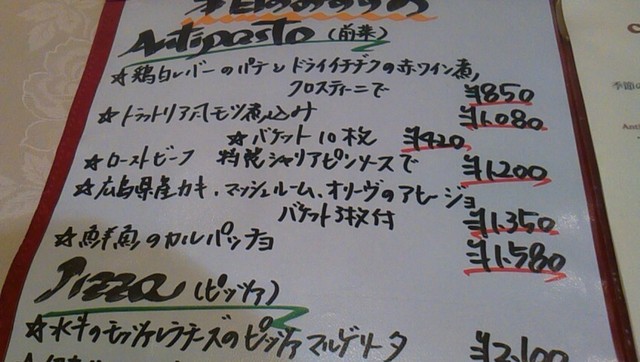 本日のおすすめ
Antipasto (前菜)
☆鶏白レバーのパテとドライイチヂクの赤ワイン煮、
クロスティーニで ¥850
☆トラットリア風モツ煮込み ¥1.080
☆バケット10枚 ¥420
☆ローストビーフ 特製シャリアピンソースで ¥1.200
☆広島県産カキ、マッシュルーム、オリーヴのアヒージョ
バケット3枚付 ¥1.350
☆鮮魚のカルパッチョ ¥1.580
Pizza (ピッツァ)
☆水牛のモッツァレラチーズのピッツァ マルゲリータ ¥2.100
季節の